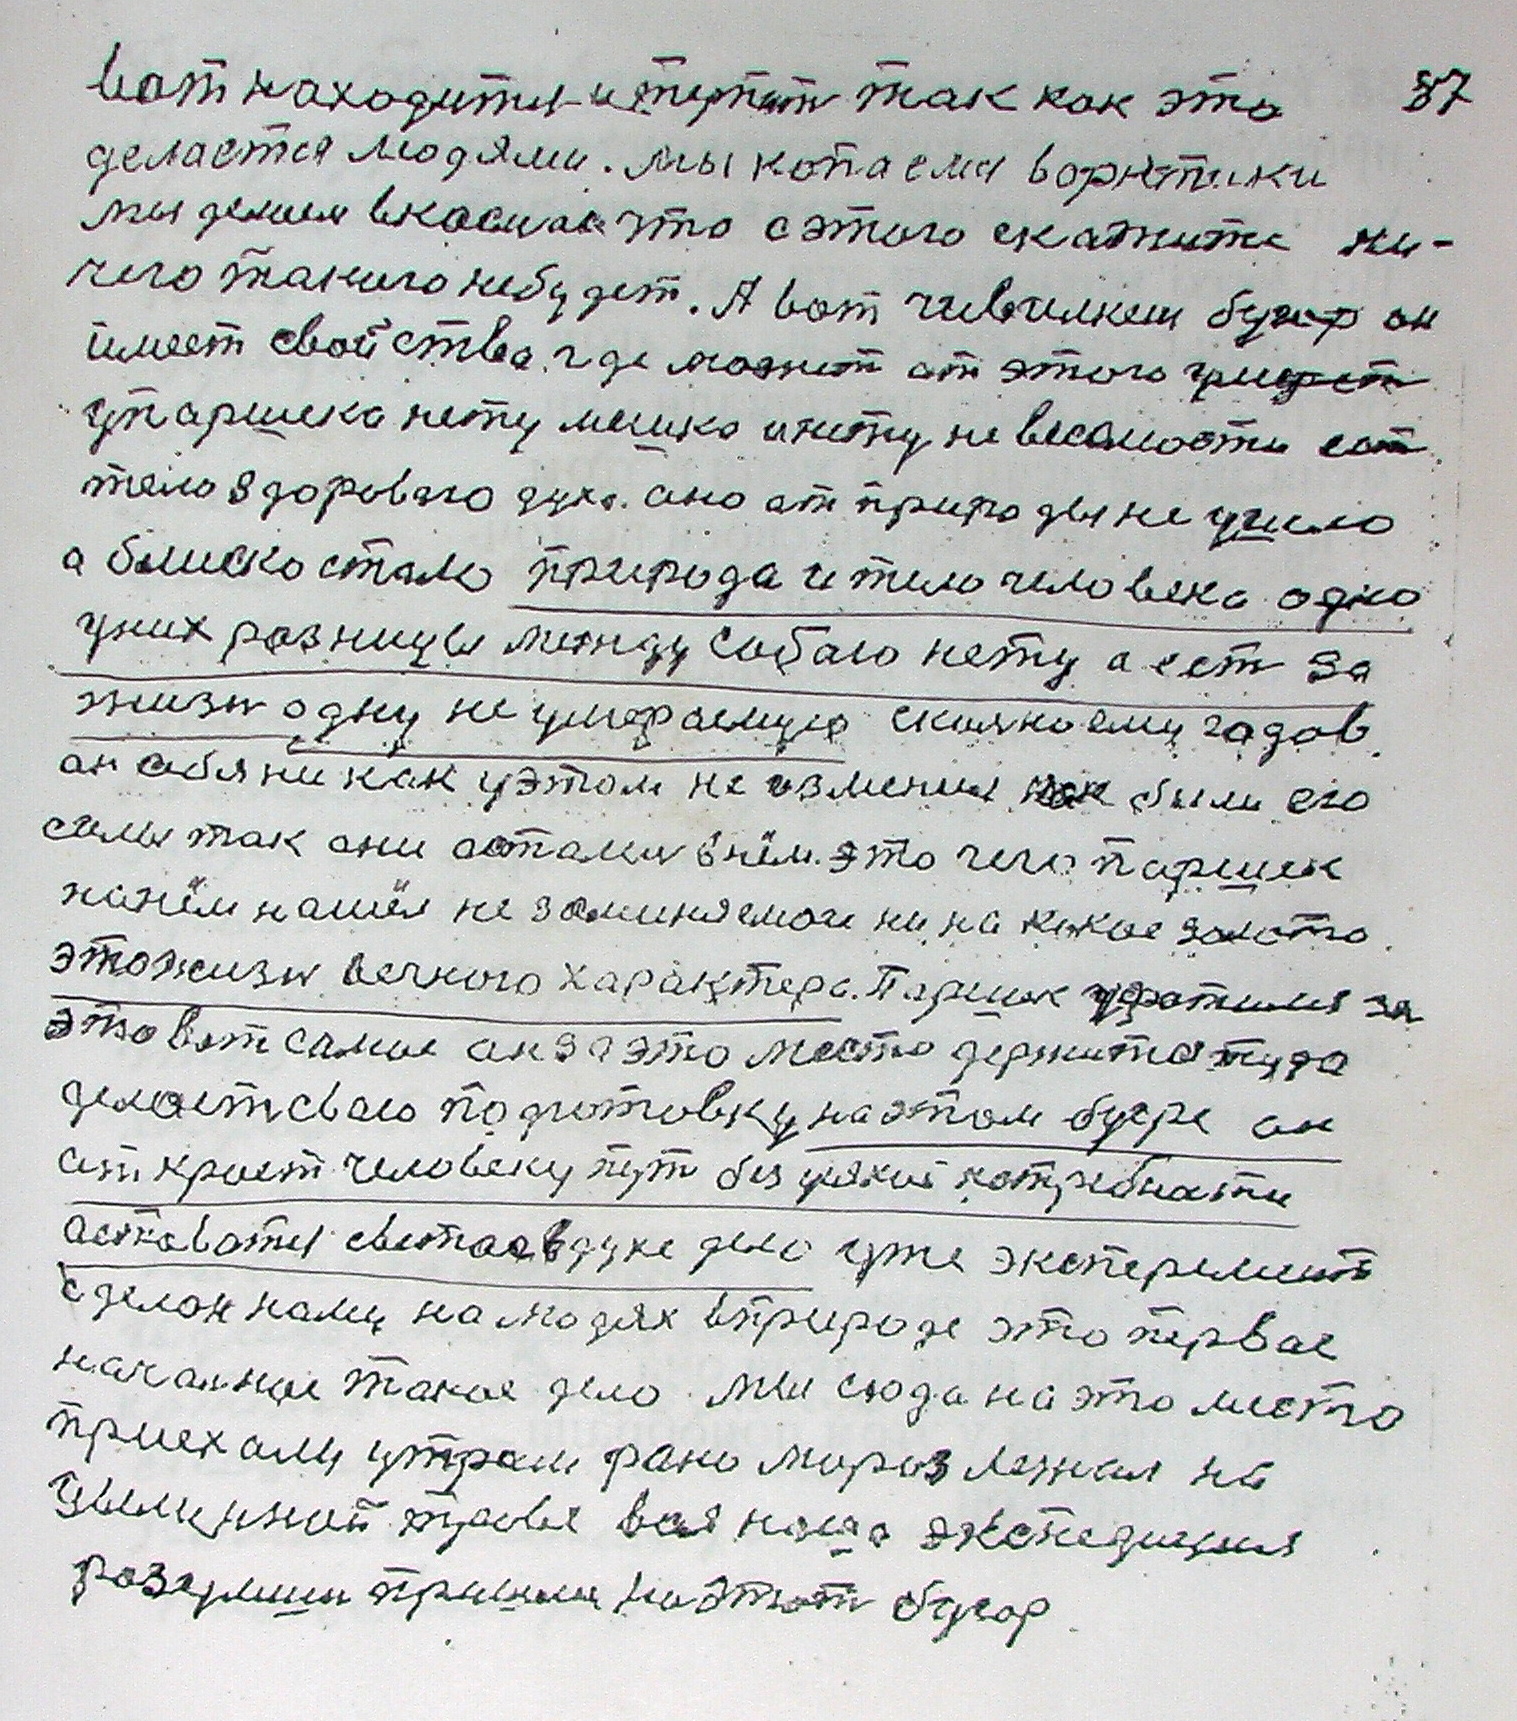 вот находится и терпит так как это 87
делается людями. мы копаемся ворятики
мы делаем в космос что с этого скажите ни-
чего такого небудет. А вот чивилкин бугор он
имеет свойства где может от этого
упаршека нету мешка инету не весомости ест
тело здороваго духа. оно от природы не ушло
а блиско стало природа и тело человека одно
уних розницы между собаю нету а ест за
жизн одну не умераемую сколко ему годов
он собя никак уэтом не изменил как были его
силы так они осталис внём. это чего паршек
нанём нашёл не заминяемаи ни на какое золото.
этожизн вечного характера. Паршек уфатился за
это вот самое он за это место держится туда
делает сваю подготовку наэтом бугре он
откроет человеку пут без усякой потребности
аставатся света в духе дело уже эксперемент
сделон нами на людях вприроде это первае
началное такое дело. мы сюда на это место
приехали утрам рано мароз лежал на
цылинной траве вся наша экспедиция
розулиси пришли наэтот бугор